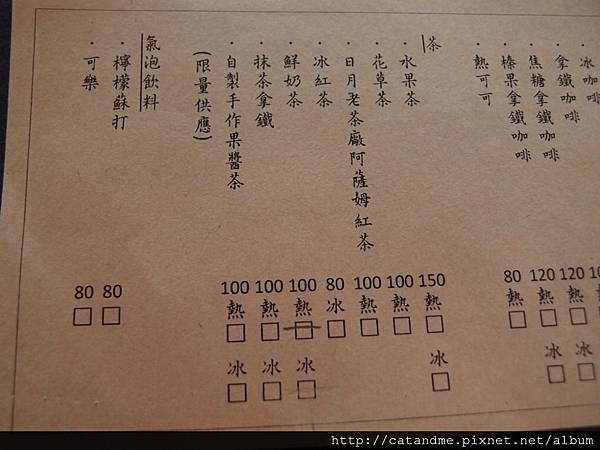 冰咖啡
拿鐵咖啡
焦糖拿鐵咖啡 120 熱□ 冰□
榛果拿鐵咖啡 120 熱□ 冰□
・熱可可 80 熱□
茶
・水果茶 150 熱□ 冰□
・花草茶 100 熱□
・日月老茶廠阿薩姆紅茶 100 熱□
・冰紅茶 80 冰□
・鮮奶茶 100 熱□ 冰□
・抹茶拿鐵 100 熱□ 冰□
・自製手作果醬茶 100 熱□ 冰□
(限量供應)
氣泡飲料
・檸檬蘇打 80 □
・可樂 80 □
http://catandme.pixnet.net/album